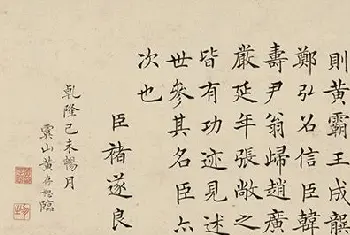 則黃霸王成龔
鄭弘召信臣韓
壽尹翁歸趙廣
嚴延年張敞之
皆有功迹見述
世參其名臣亦
次也
臣褚遂良
乾隆己未暢月
山黃臨